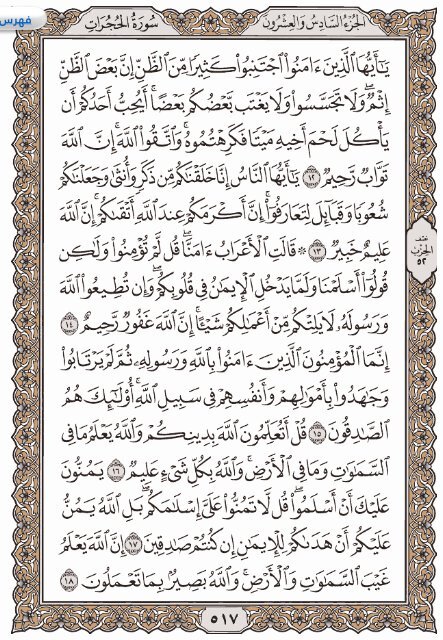 فهرس
سُورَةُ الحُجُرَاتِ
الجُزْءُ السَّادِسُ وَالعِشْرُونَ
يَٰٓأَيُّهَا ٱلَّذِينَ ءَامَنُوا۟ ٱجْتَنِبُوا۟ كَثِيرًا مِّنَ ٱلظَّنِّ إِنَّ بَعْضَ ٱلظَّنِّ
إِثْمٌ ۖ وَلَا تَجَسَّسُوا۟ وَلَا يَغْتَب بَّعْضُكُم بَعْضًا ۚ أَيُحِبُّ أَحَدُكُمْ أَن
يَأْكُلَ لَحْمَ أَخِيهِ مَيْتًا فَكَرِهْتُمُوهُ ۚ وَٱتَّقُوا۟ ٱللَّهَ ۚ إِنَّ ٱللَّهَ
تَوَّابٌ رَّحِيمٌ ١٢ يَٰٓأَيُّهَا ٱلنَّاسُ إِنَّا خَلَقْنَٰكُم مِّن ذَكَرٍ وَأُنثَىٰ وَجَعَلْنَٰكُمْ
شُعُوبًا وَقَبَآئِلَ لِتَعَارَفُوٓا۟ ۚ إِنَّ أَكْرَمَكُمْ عِندَ ٱللَّهِ أَتْقَىٰكُمْ ۚ إِنَّ ٱللَّهَ
عَلِيمٌ خَبِيرٌ ١٣ ۞ قَالَتِ ٱلْأَعْرَابُ ءَامَنَّا ۖ قُل لَّمْ تُؤْمِنُوا۟ وَلَٰكِن
قُولُوٓا۟ أَسْلَمْنَا وَلَمَّا يَدْخُلِ ٱلْإِيمَٰنُ فِى قُلُوبِكُمْ ۖ وَإِن تُطِيعُوا۟ ٱللَّهَ
وَرَسُولَهُۥ لَا يَلِتْكُم مِّنْ أَعْمَٰلِكُمْ شَيْـًٔا ۚ إِنَّ ٱللَّهَ غَفُورٌ رَّحِيمٌ ١٤
إِنَّمَا ٱلْمُؤْمِنُونَ ٱلَّذِينَ ءَامَنُوا۟ بِٱللَّهِ وَرَسُولِهِۦ ثُمَّ لَمْ يَرْتَابُوا۟
وَجَٰهَدُوا۟ بِأَمْوَٰلِهِمْ وَأَنفُسِهِمْ فِى سَبِيلِ ٱللَّهِ ۚ أُو۟لَٰٓئِكَ هُمُ
ٱلصَّٰدِقُونَ ١٥ قُلْ أَتُعَلِّمُونَ ٱللَّهَ بِدِينِكُمْ وَٱللَّهُ يَعْلَمُ مَا فِى
ٱلسَّمَٰوَٰتِ وَمَا فِى ٱلْأَرْضِ ۚ وَٱللَّهُ بِكُلِّ شَىْءٍ عَلِيمٌ ١٦ يَمُنُّونَ
عَلَيْكَ أَنْ أَسْلَمُوا۟ ۖ قُل لَّا تَمُنُّوا۟ عَلَىَّ إِسْلَٰمَكُم ۖ بَلِ ٱللَّهُ يَمُنُّ
عَلَيْكُمْ أَنْ هَدَىٰكُمْ لِلْإِيمَٰنِ إِن كُنتُمْ صَٰدِقِينَ ١٧ إِنَّ ٱللَّهَ يَعْلَمُ
غَيْبَ ٱلسَّمَٰوَٰتِ وَٱلْأَرْضِ ۚ وَٱللَّهُ بَصِيرٌۢ بِمَا تَعْمَلُونَ ١٨
نصف
الحزب
٥٢
٥١٧